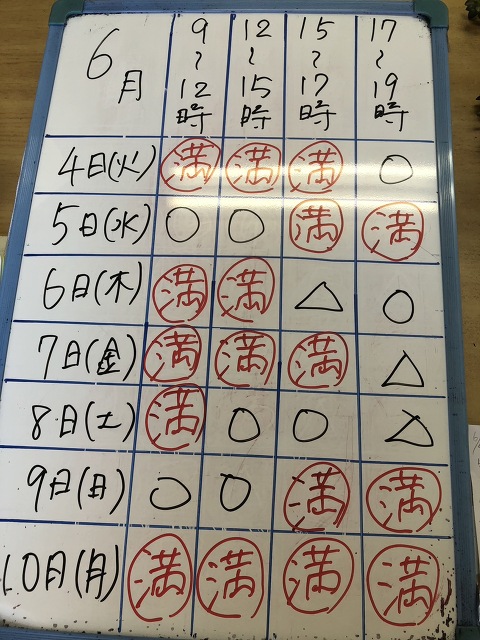 6月 9~12時 12~15時 15~17時 17~19時
4日(火) 満 満 満 ○
5日(水) ○ ○ 満 満
6日(木) 満 満 △ ○
7日(金) 満 満 満 △
8日(土) 満 ○ ○ △
9日(日) ○ ○ 満 満
10日(月) 満 満 満 満